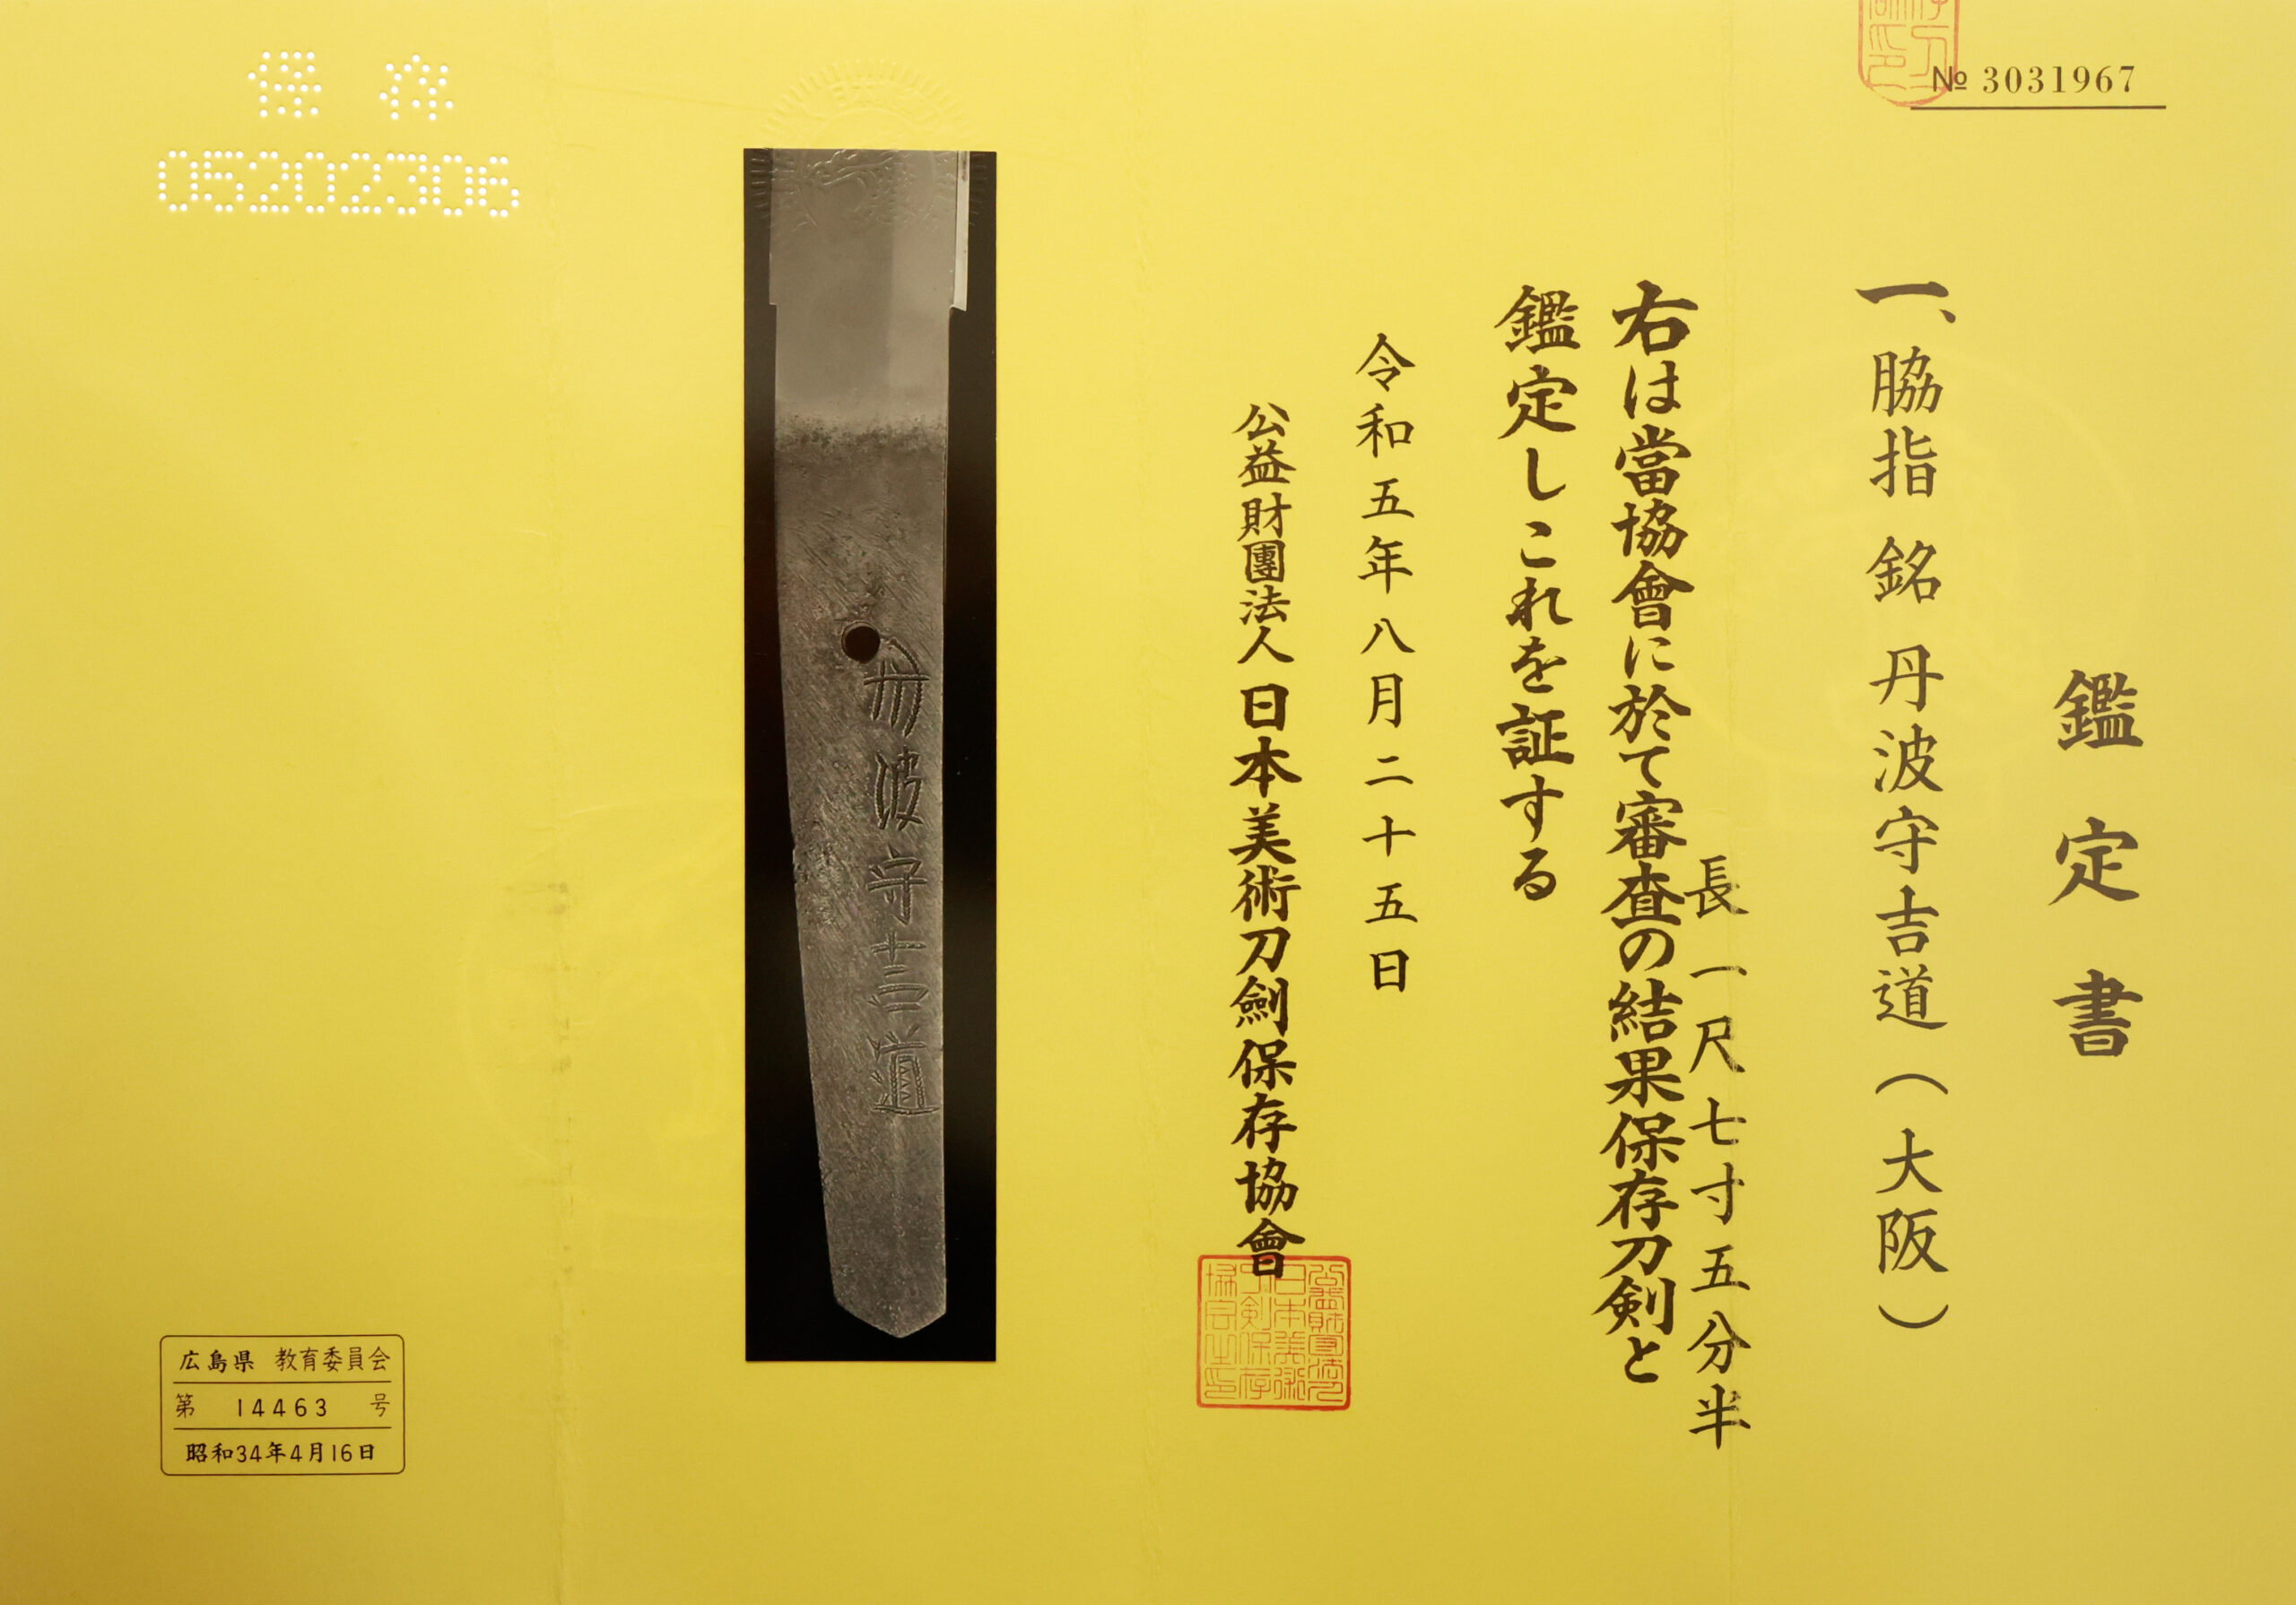 № 3031967
鑑定書
一、脇指 銘 丹波守吉道(大阪)
長一尺七寸五分半
右は當協會に於て審査の結果保存刀剣と
鑑定しこれを証する
令和五年八月二十五日
公益財團法人日本美術刀劍保存協會
丹波守吉道
保存
05202306
広島県 教育委員会
第 14463 号
昭和34年4月16日